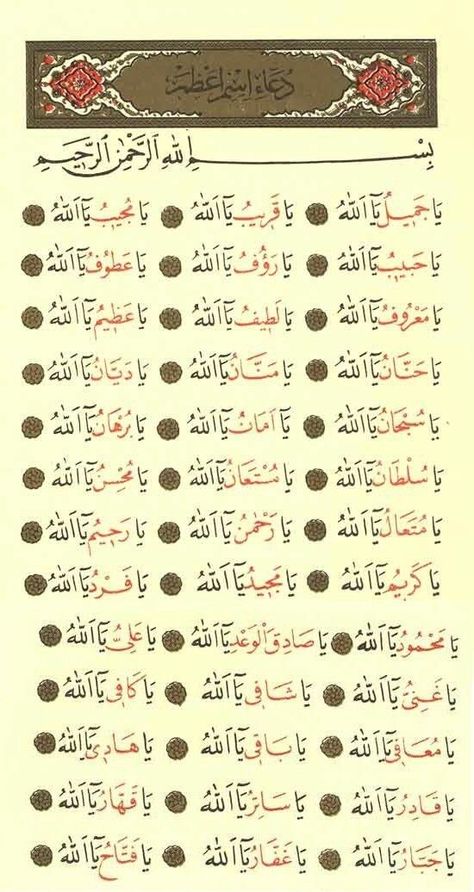 دُعَاءِ اِسْمِ اَعْظَمْ
بِسْمِ اللهِ الرَّحْمٰنِ الرَّحِيمِ
يَا جَمِيلُ يَآ اَللهُ يَا قَرِيبُ يَآ اَللهُ يَا مُجِيبُ يَآ اَللهُ
يَا حَبِيبُ يَآ اَللهُ يَا رَؤُفُ يَآ اَللهُ يَا عَطُوفُ يَآ اَللهُ
يَا مَعْرُوفُ يَآ اَللهُ يَا لَطِيفُ يَآ اَللهُ يَا عَظِيمُ يَآ اَللهُ
يَا حَنَّانُ يَآ اَللهُ يَا مَنَّانُ يَآ اَللهُ يَا دَيَّانُ يَآ اَللهُ
يَا سُبْحَانُ يَآ اَللهُ يَآ اَمَانُ يَآ اَللهُ يَا بُرْهَانُ يَآ اَللهُ
يَا سُلْطَانُ يَآ اَللهُ يَا مُسْتَعَانُ يَآ اَللهُ يَا مُحْسِنُ يَآ اَللهُ
يَا مُتَعَالُ يَآ اَللهُ يَا رَحْمٰنُ يَآ اَللهُ يَا رَحِيمُ يَآ اَللهُ
يَا كَرِيمُ يَآ اَللهُ يَا مَجِيدُ يَآ اَللهُ يَا فَرْدُ يَآ اَللهُ
يَا مَحْمُودُ يَآ اَللهُ يَا صَادِقَ الْوَعْدِ يَآ اَللهُ يَا عَلِيُّ يَآ اَللهُ
يَا غَنِيُّ يَآ اَللهُ يَا شَافِى يَآ اَللهُ يَا كَافِى يَآ اَللهُ
يَا مُعَافِى يَآ اَللهُ يَا بَاقِى يَآ اَللهُ يَا هَادِى يَآ اَللهُ
يَا قَادِرُ يَآ اَللهُ يَا سَاتِرُ يَآ اَللهُ يَا قَهَّارُ يَآ اَللهُ
يَا جَبَّارُ يَآ اَللهُ يَا غَفَّارُ يَآ اَللهُ يَا فَتَّاحُ يَآ اَللهُ